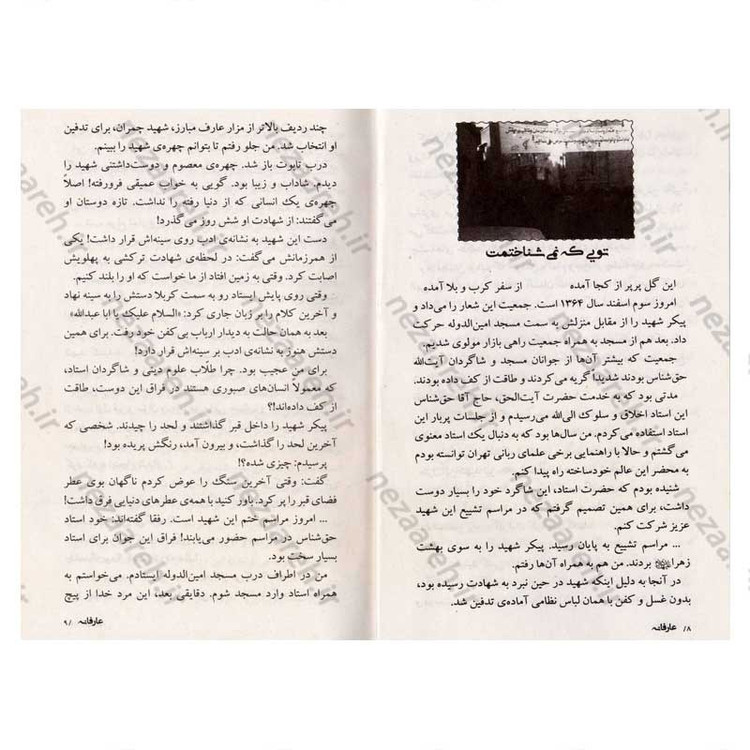 تویی که نمی‌شناختمت
این گل پرپر از کجا آمده از سفر کرب و بلا آمده
امروز سوم اسفند سال ۱۳۶۴ است. جمعیت این شعار را می‌داد و
پیکر شهید را از مقابل منزلش به سمت مسجد امین‌الدوله حرکت
داد. بعد هم از مسجد به همراه جمعیت راهی بازار مولوی شدیم.
جمعیت که بیشتر آن‌ها از جوانان مسجد و شاگردان آیت‌الله
حق‌شناس بودند شدیداً گریه می‌کردند و طاقت از کف داده بودند.
مدتی بود که به خدمت حضرت آیت‌الحق، حاج آقا حق‌شناس
این استاد اخلاق و سلوک الی‌الله می‌رسیدم و از جلسات پربار این
استاد استفاده می‌کردم. من سال‌ها بود که به دنبال یک استاد معنوی
می‌گشتم و حالا با راهنمایی برخی علمای ربانی تهران توانسته بودم
به محضر این عالم خودساخته راه پیدا کنم.
شنیده بودم که حضرت استاد، این شاگرد خود را بسیار دوست
داشت، برای همین تصمیم گرفتم که در مراسم تشییع این شهید
عزیز شرکت کنم.
... مراسم تشییع به پایان رسید. پیکر شهید را به سوی بهشت
زهرا بردند. من هم به همراه آن‌ها رفتم.
در آنجا به دلیل اینکه شهید در حین نبرد به شهادت رسیده بود،
بدون غسل و کفن با همان لباس نظامی آماده‌ی تدفین شد.
۸/ عارفانه
چند ردیف بالاتر از مزار عارف مبارز، شهید چمران، برای تدفین
او انتخاب شد. من جلو رفتم تا بتوانم چهره‌ی شهید را ببینم.
درب تابوت باز شد. چهره‌ی معصوم و دوست‌داشتنی شهید را
دیدم. شاداب و زیبا بود. گویی به خواب عمیقی فرورفته! اصلاً
چهره‌ی یک انسانی که از دنیا رفته را نداشت. تازه دوستان او
می‌گفتند: از شهادت او شش روز می‌گذرد!
دست این شهید به نشانه‌ی ادب روی سینه‌اش قرار داشت! یکی
از همرزمانش می‌گفت: در لحظه‌ی شهادت ترکشی به پهلویش
اصابت کرد. وقتی به زمین افتاد از ما خواست که او را بلند کنیم.
وقتی روی پایش ایستاد رو به سمت کربلا دستش را به سینه نهاد
و آخرین کلام را بر زبان جاری کرد: «السلام علیک یا ابا عبدالله»
بعد به همان حالت به دیدار ارباب بی‌کفن خود رفت. برای همین
دستش هنوز به نشانه‌ی ادب بر سینه‌اش قرار دارد!
برای من عجیب بود. چرا طلاب علوم دینی و شاگردان استاد،
که معمولاً انسان‌های صبوری هستند در فراق این دوست، طاقت
از کف داده‌اند!؟
پیکر شهید را داخل قبر گذاشتند و لحد را چیدند. شخصی که
آخرین لحد را گذاشت، و بیرون آمد، رنگش پریده بود!
پرسیدم: چیزی شده؟!
گفت: وقتی آخرین سنگ را عوض کردم ناگهان بوی عطر
فضای قبر را پر کرد. باور کنید با همه‌ی عطرهای دنیایی فرق داشت!
... امروز مراسم ختم این شهید است. رفقا گفته‌اند: خود استاد
حق‌شناس در مراسم حضور می‌یابند! فراق این جوان برای استاد
بسیار سخت بود.
من در اطراف درب مسجد امین‌الدوله ایستادم. می‌خواستم به
همراه استاد وارد مسجد شوم. دقایقی بعد، این مرد خدا از پیچ
عارفانه /۹
nezaareh.ir
nezaareh.ir
nezaareh.ir
nezaareh.ir
nezaareh.ir
nezaareh.ir